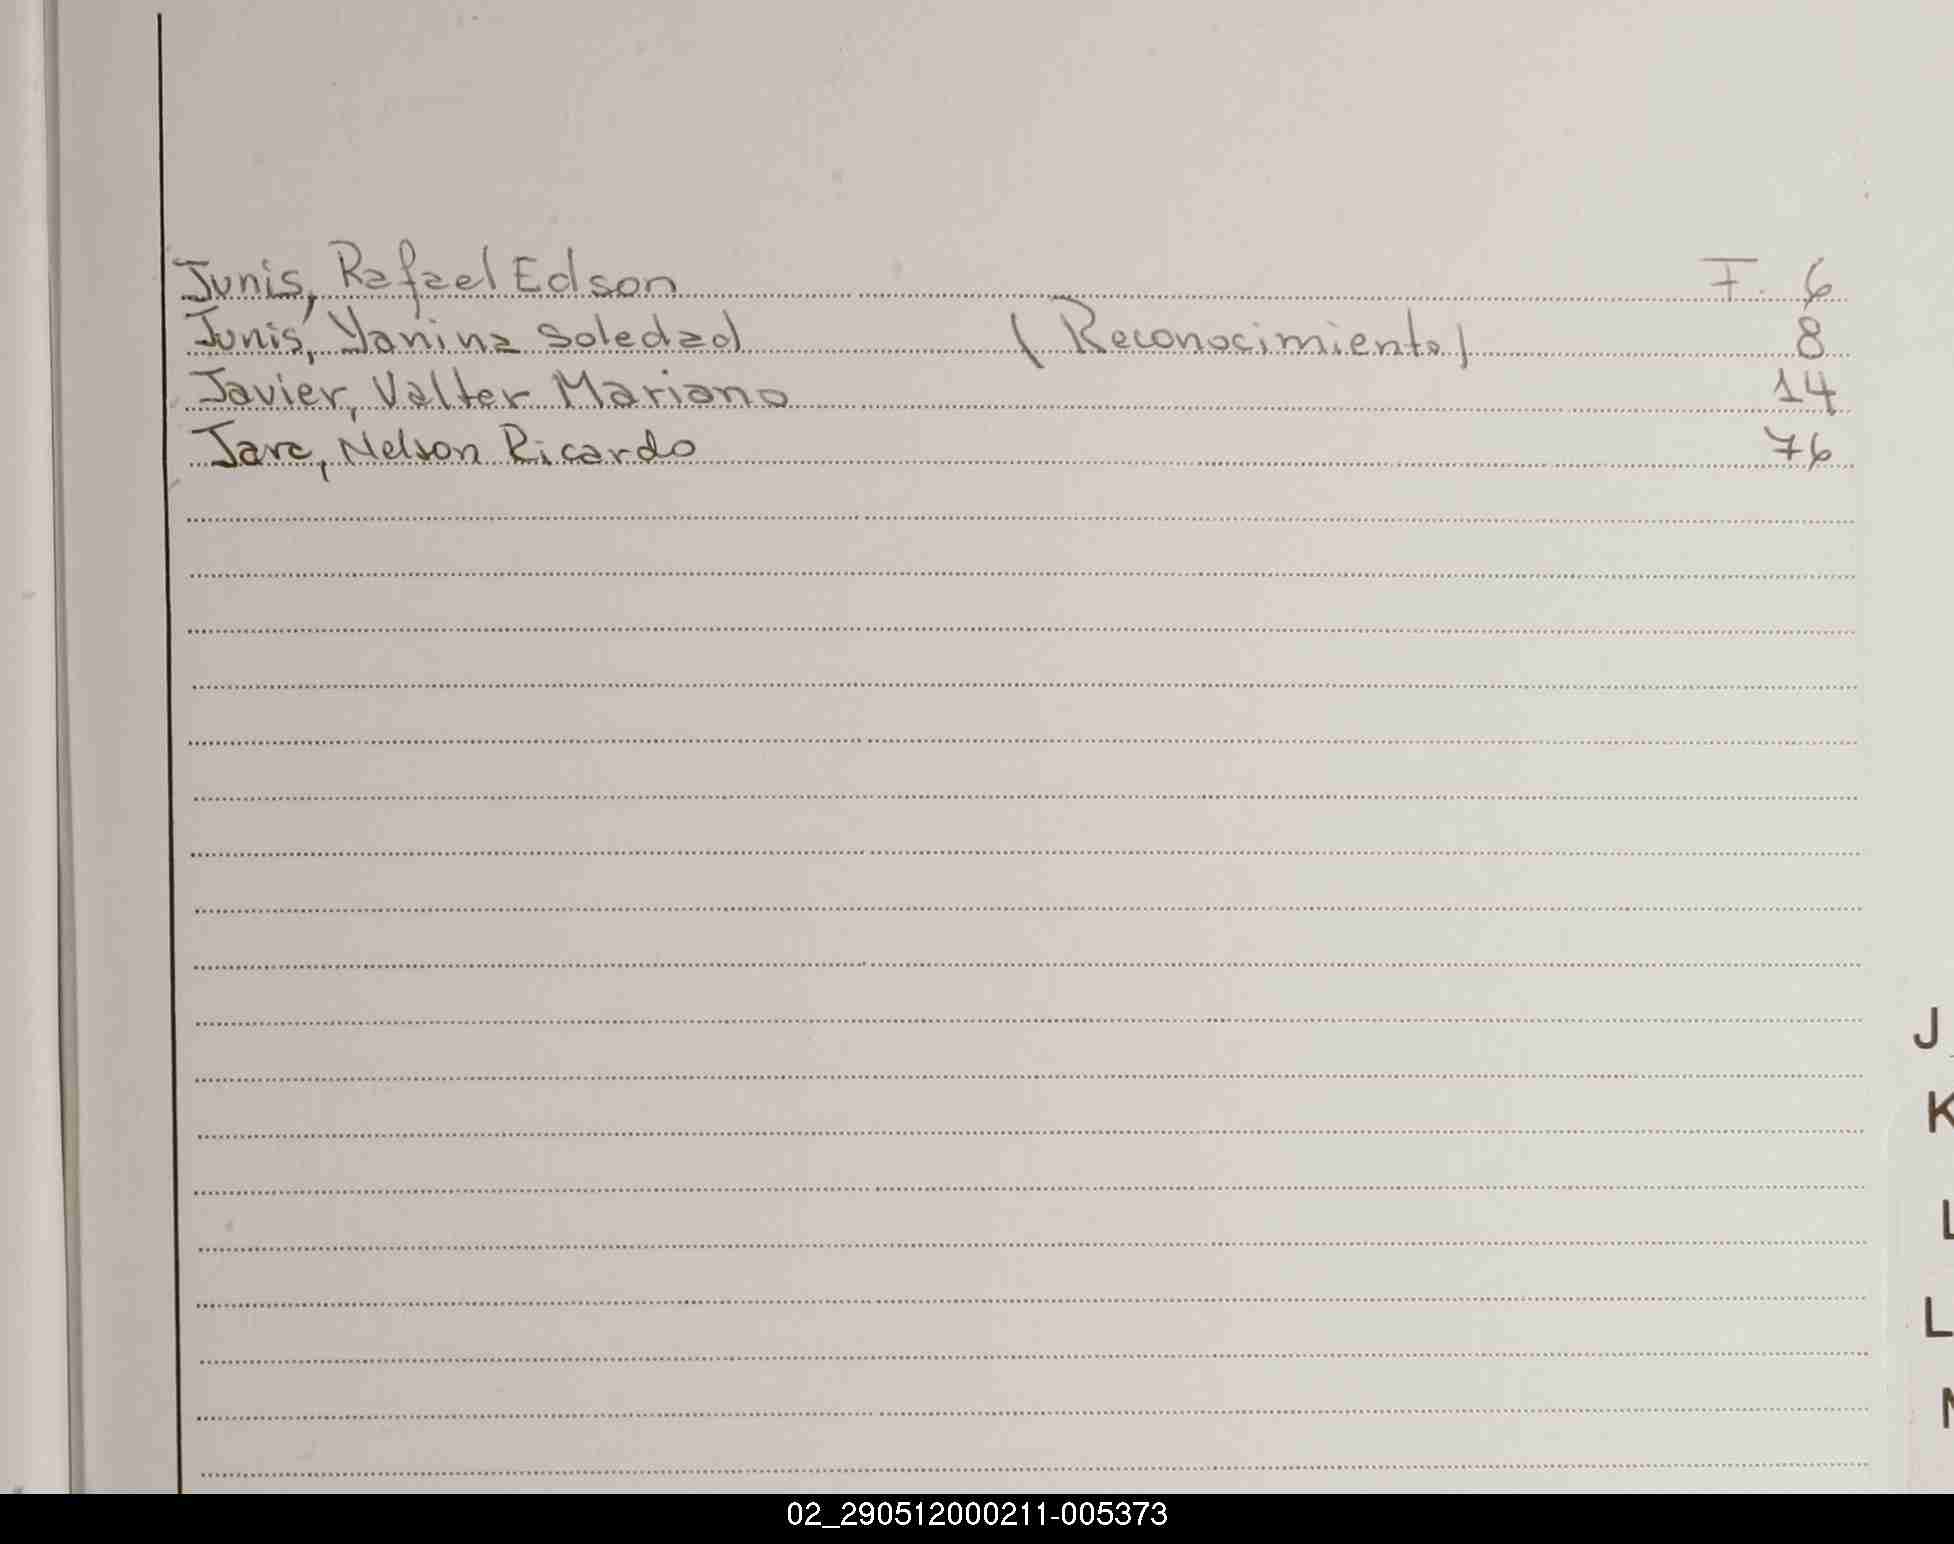 Junis, Rafael Edson F. 6
Junis, Yanina Soledad (Reconocimiento) 8
Javier, Valter Mariano 14
Jara, Nelson Ricardo 76
J
K
L
L
02_290512000211-005373